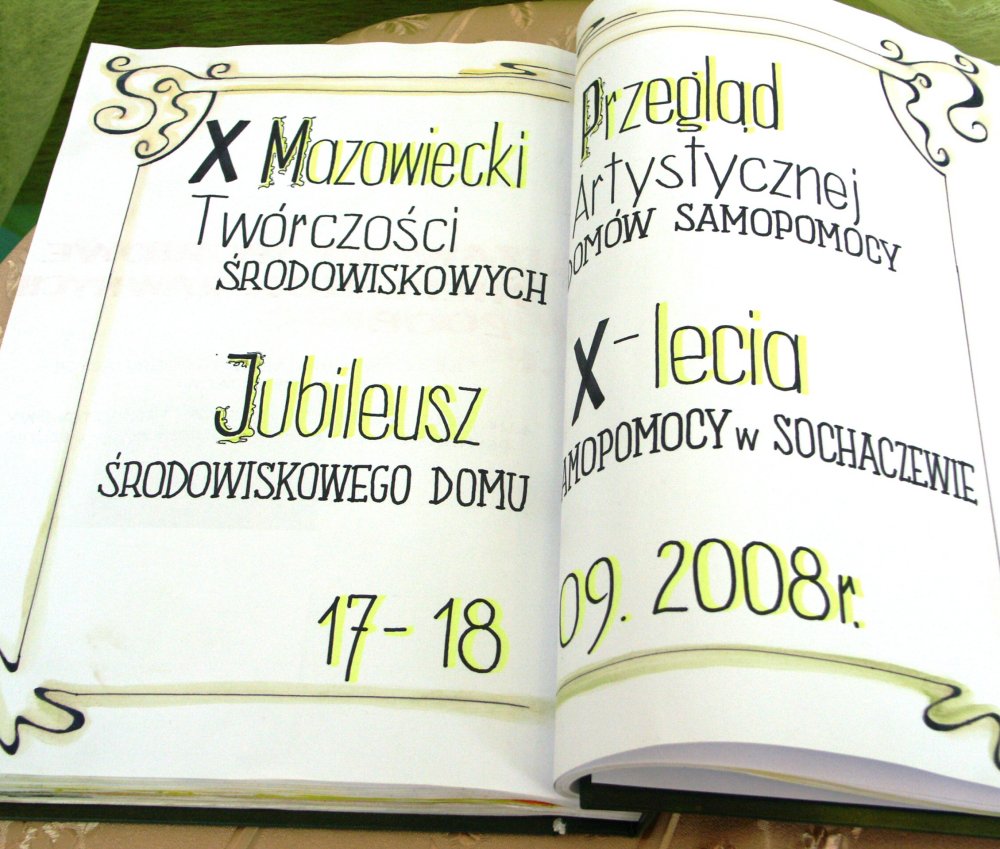 X Mazowiecki Przegląd
Twórczości Artystycznej
ŚRODOWISKOWYCH DOMÓW SAMOPOMOCY
Jubileusz X-lecia
ŚRODOWISKOWEGO DOMU SAMOPOMOCY w SOCHACZEWIE
17-18 09. 2008r.